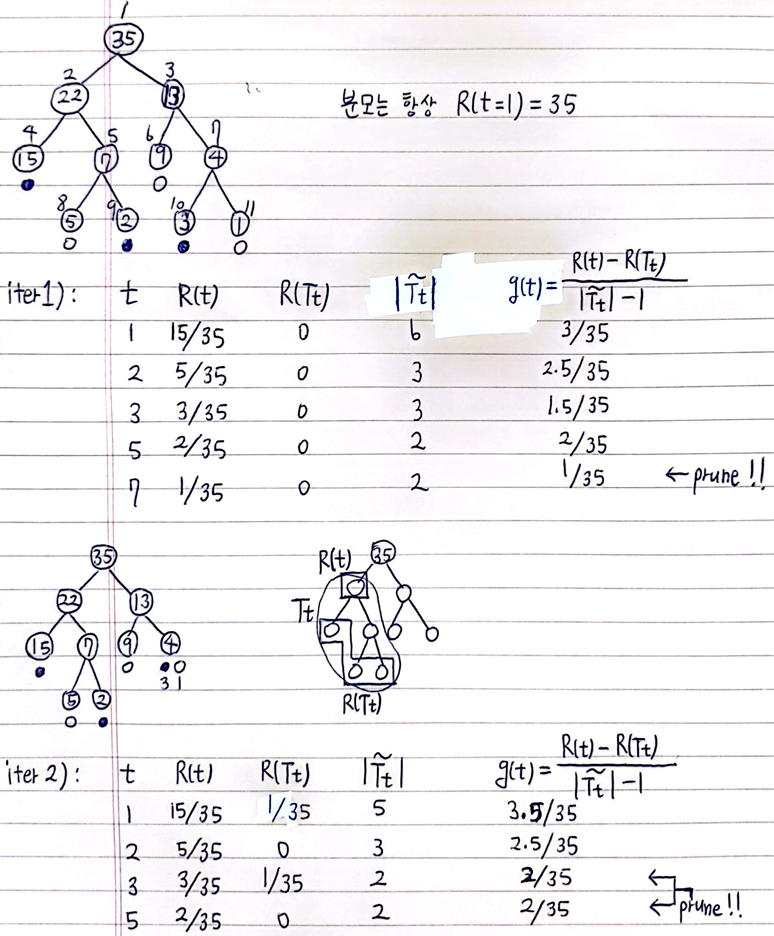 1
35
2 3
22 13
분모는 항상 R(t=1) = 35
4 5 6 7
15 7 9 4
8 9 10 11
5 2 3 1
iter1) : t R(t) R(Tt) |T̃t| g(t) = (R(t) − R(Tt)) / (|T̃t| − 1)
1 15/35 0 6 3/35
2 5/35 0 3 2.5/35
3 3/35 0 3 1.5/35
5 2/35 0 2 2/35
7 1/35 0 2 1/35 ← prune!!
35
22 13
15 7 9 4
3 1
5 2
R(t) 35
Tt
R(Tt)
iter 2) : t R(t) R(Tt) |T̃t| g(t) = (R(t) − R(Tt)) / (|T̃t| − 1)
1 15/35 1/35 5 3.5/35
2 5/35 0 3 2.5/35
3 3/35 1/35 2 2/35 ←
5 2/35 0 2 2/35 ← prune!!